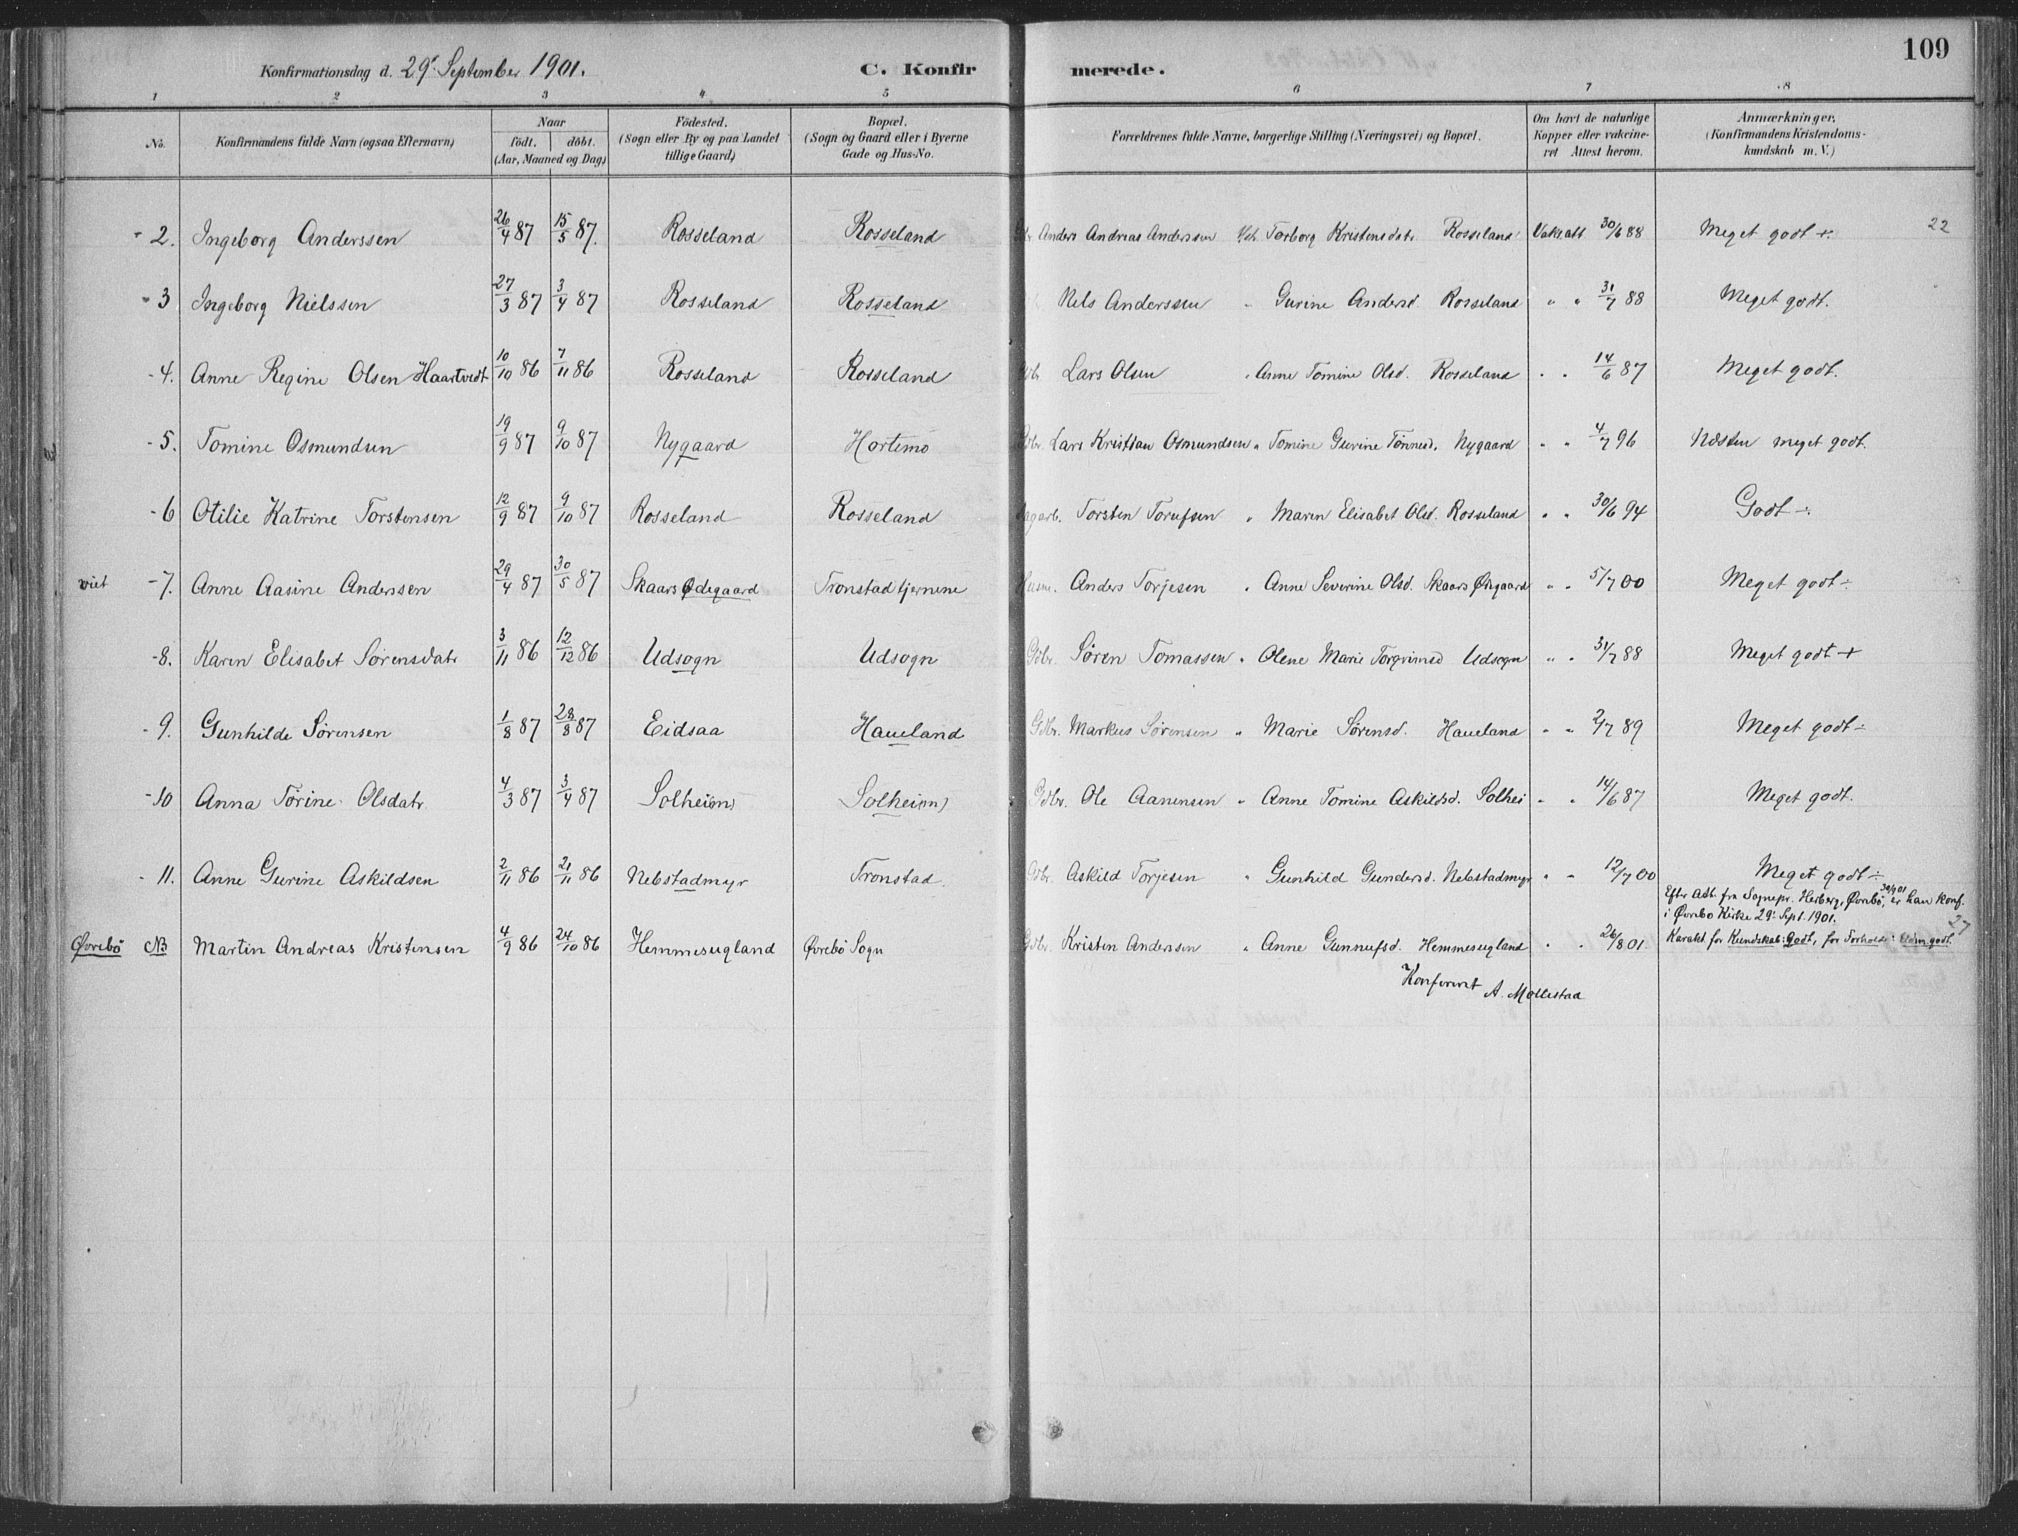 109
Konfirmationsdag d. 29de September 1901. C. Konfirmerede.
1 2 3 4 5 6 7 8
No. Konfirmandens fulde Navn (ogsaa Efternavn) Naar födt. döbt. (Aar, Maaned og Dag) Födested. (Sogn eller By og paa Landet tillige Gaard) Bopæl. (Sogn og Gaard eller i Byerne Gade og Hus-No. Forældrenes fulde Navne, borgerlige Stilling (Næringsvei) og Bopæl. Om havt de naturlige Kopper eller vakcineret Attest herom. Anmærkninger. (Konfirmandens Kristendomskundskab m. V.)
- 2. Ingeborg Anderssen 26/4 87 15/5 87. Rosseland Rosseland Anders Andreas Anderssen Torborg Kristensdatr Rosseland Vakc att 30/6 88 Meget godt +. 22
- 3 Ingeborg Nielssen 27/3 87 3/4 87 Rosseland Rosseland Nels Anderssen " Gurine Andersd. Rosseland " " 31/7 88 Meget godt.
- 4. Anne Regine Olsen Haartvedt 10/10 86 7/11 86 Rosseland Rosseland Gdbr Lars Olsen " Anne Tomine Olsd. Rosseland " " 14/6 87 Meget godt.
- 5. Tomine Osmundsen 19/9 87 9/10 87 Nygaard Hortemo Gdbr. Lars Kristian Osmundsen " Tomine Gurine Tønnesd. Nygaard " " 4/7 96 Næsten meget godt.
- 6 Otilie Katrine Torstensen 12/9 87 9/10 87 Rosseland Rosseland Dagarb. Torsten Torufsen " Maren Elisabet Olsd. Rosseland " " 30/6 94 Godt ÷.
- 7. Anne Aasine Anderssen 29/4 87 30/5 87 Skaars Ødegaard Tronstadtjernene Husm. Anders Torjesen " Anne Severine Olsd. Skaars Ødegaard " " 5/7 00 Meget godt ÷
- 8. Karen Elisabet Sørensdatr 3/11 86 12/12 86 Udsogn Udsogn Gdbr. Søren Tomassen " Olene Marie Torgrimsd Udsogn " " 31/7 88 Meget godt +
- 9. Gunhilde Sørensen 1/8 87 28/8 87 Eidsaa Haueland Gdbr. Markus Sørensen " Marie Sørensd. Haueland " " 2/7 89 Meget godt ÷
- 10 Anna Tørine Olsdatr 4/3 87 3/4 87 Solheim Solheim Gdbr. Ole Aanensen " Anne Tomine Askildsd. Solhei " " 14/6 87 Meget godt.
- 11. Anne Gurine Askildsen 2/11 86 21/11 86 Nebstadmyr Tronstad Gdbr. Askild Torjesen " Gunhild Gundersd. Nebstadmyr " " 12/7 00 Meget godt ÷
Efter Att. fra Sognepr. Herberg, Øvrebø, 30/9 01 er han konf.
i Øvrebø Kirke 29de Sept. 1901.
Øvrebø NB Martin Andreas Kristensen 4/9 86 24/10 86 Hemmesugland Øvrebø Sogn Gdbr. Kristen Andersen " Anne Gunnufsd. Hemmesugland " " 26/8 01 Karakt for Kundskab: Godt, for Forhold: Udm. godt. 27
Konfereret A. Mollestad